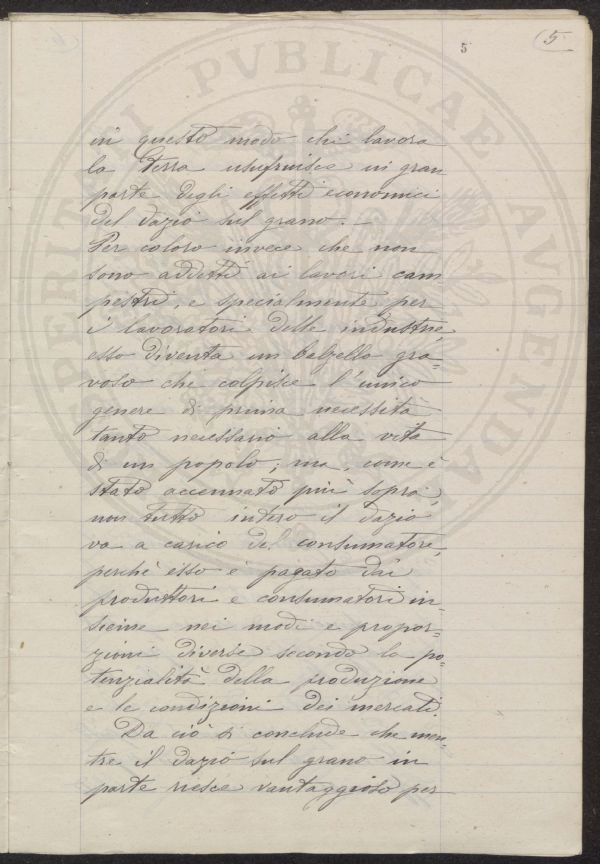 5
5
in questo modo chi lavora
la terra usufruisce in gran
parte degli effetti economici
del dazio sul grano. —
Per coloro invece che non
sono addetti ai lavori cam
pestri, e specialmente per
i lavoratori delle industrie,
esso diventa un balzello gra=
voso che colpisce l'unico
genere di prima necessità
tanto necessario alla vita
di un popolo; ma, come è
stato accennato più sopra,
non tutto intero il dazio
va a carico del consumatore,
perchè esso è pagato dai
produttori e consumatori in=
sieme nei modi e propor=
zioni diverse secondo la po=
tenzialità della produzione
e le condizioni dei mercati
Da ciò si conclude che men=
tre il dazio sul grano in
parte riesce vantaggioso per
PVBLICAE
AVGENDAE